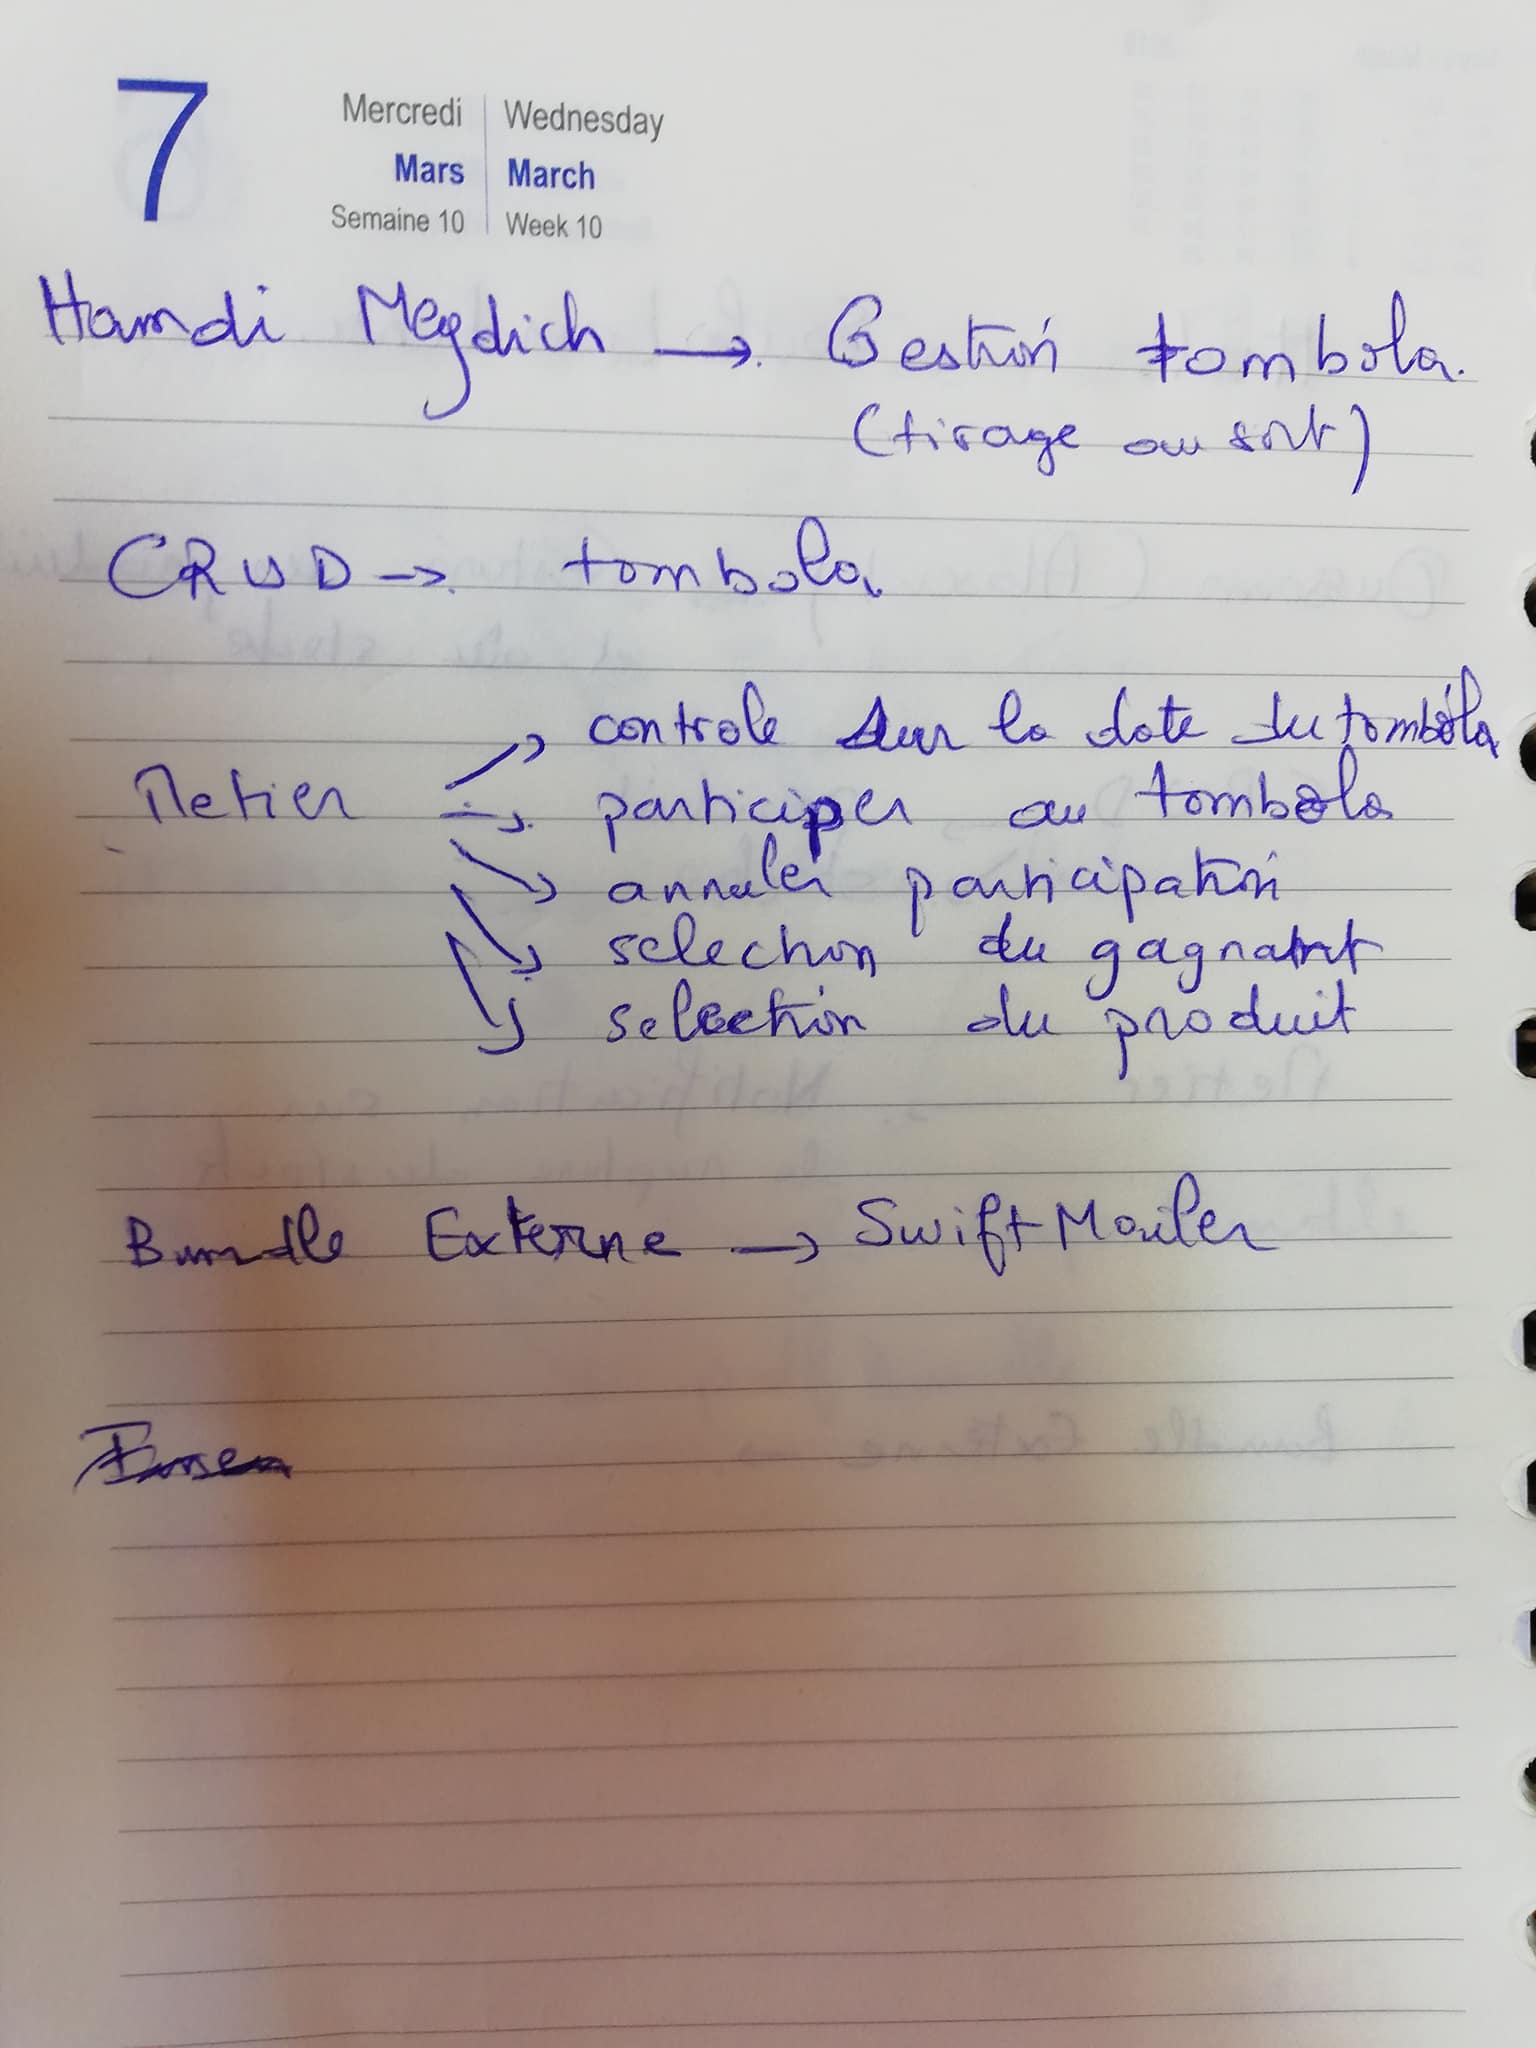 7
Mercredi Wednesday
Mars March
Semaine 10 Week 10
Hamdi Megdich → Gestion tombola.
(tirage au sort)
CRUD → tombola
Metier → controle sur la date du tombola
→ participer au tombola
→ annuler participation
→ selection du gagnant
→ selection du produit
Bundle Externe → SwiftMailer